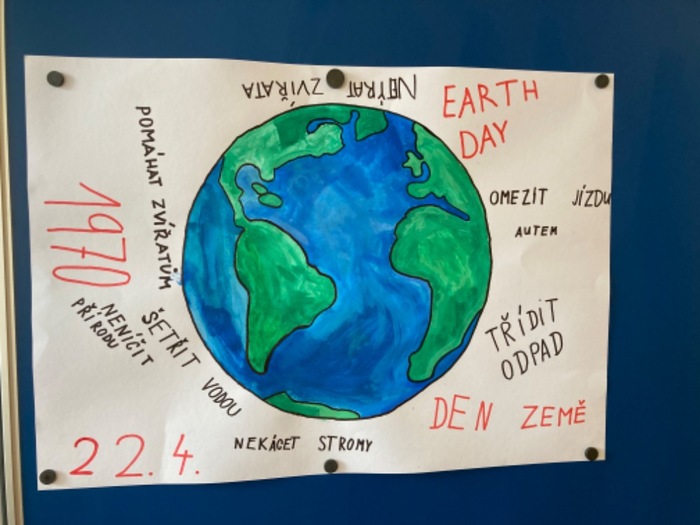 NETÝRAT ZVÍŘATA
EARTH
DAY
POMÁHAT ZVÍŘATŮM
OMEZIT JÍZDU
AUTEM
1970
NENIČIT
PŘÍRODU
ŠETŘIT VODOU
TŘÍDIT
ODPAD
DEN ZEMĚ
22.4.
NEKÁCET STROMY